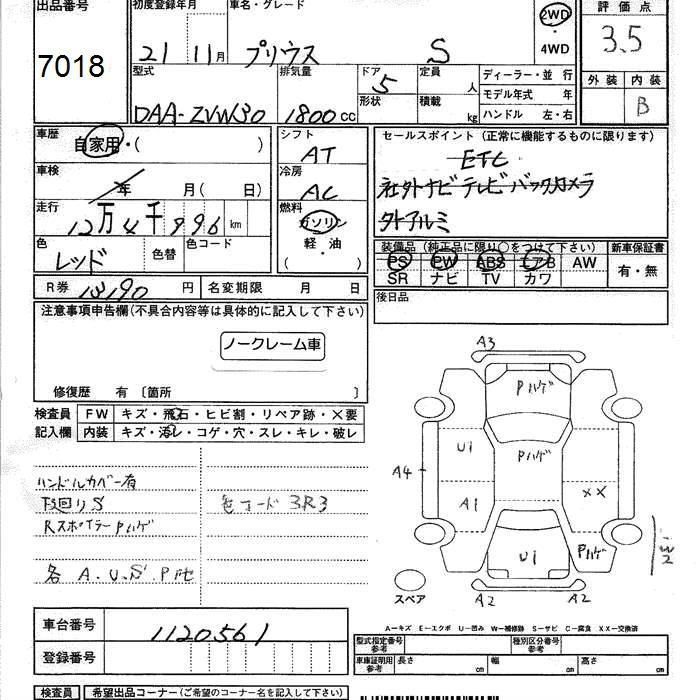 出品番号
7018
初度登録年月
21 11月
車名・グレード
プリウス S
2WD
・
4WD
評価点
3.5
外装 内装
B
型式
DAA-ZVW30
排気量
1800cc
ドア
5
形状
定員
人
積載
kg
ディーラー・並 行
モデル年式 年
ハンドル 左・右
車歴
自家用・( )
車検
年 月( 日)
走行
12万4千996km
色
レッド
色替
色コード
シフト
AT
冷房
AC
燃料
ガソリン
軽・油
( )
セールスポイント(正常に機能するものに限ります)
ETC
社外ナビテレビバックカメラ
外アルミ
装備品(純正品に限り○をつけて下さい)
PS PW ABS エアB AW
SR ナビ TV カワ
新車保証書
有・無
R券 円
名変期限 月 日
後日品
注意事項申告欄(不具合内容等は具体的に記入して下さい)
ノークレーム車
修復歴 有〔箇所 〕
検査員
記入欄
FW キズ・飛石・ヒビ割・リペア跡・×要
内装 キズ・汚レ・コゲ・穴・スレ・キレ・破レ
ハンドルカバー有
下回りS
RスポイラーPハゲ
各 A.U.S.P他
色コード 3R3
A3
Pハゲ
U1
Pハゲ
A4
A1
XX
U1
Pハゲ
A2
A2
スペア
A-キズ E-エクボ U-凹み W-補修跡 S-サビ C-腐食 XX-交換済
車台番号
1120561
登録番号
型式指定番号
参考
種別区分番号
参考
車庫証明用
参考
長さ cm
幅 cm
高さ cm
検査員
希望出品コーナー(ご希望のコーナー名を記入下さい)